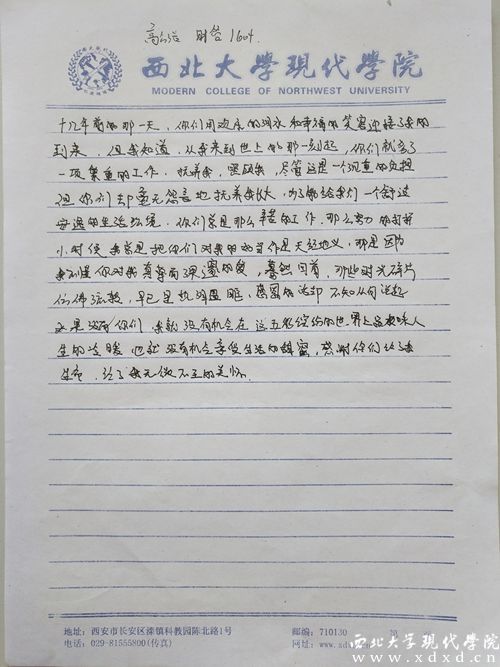 财管 1604.
西北大學現代學院
MODERN COLLEGE OF NORTHWEST UNIVERSITY
十几年前的那一天,你们用边度的泪水和幸福的笑容迎接了我的
到来,但我知道,从我来到世上的那一刻起,你们就多了
一项繁重的工作,抚养我,照顾我,尽管这是一个沉重的负担
但你们却毫无怨言地抚养我长大,为了能给我们一个舒适
安逸的生活环境,你们总是那么辛苦的工作,那么努力的打拼
小时侯我总是把你们对我的好当作是天经地义,那是因为
我不懂你对我真挚而深沉的爱,蓦然回首,那些时光碎片
仿佛流转,早已是热泪盈眶,感恩的话却不知从何说起
如果没有你们,我就没有机会在这五彩缤纷的世界上品味人
生的冷暖,也就没有机会享受生活的甜蜜,感谢你们给了我
生命,给了我无微不至的关怀.
地址:西安市长安区滦镇科教园陈北路1号
电话:029-81555800(传真)
邮编:710130
网址:www.xd
西北大学现代学院
www.xdxd.cn